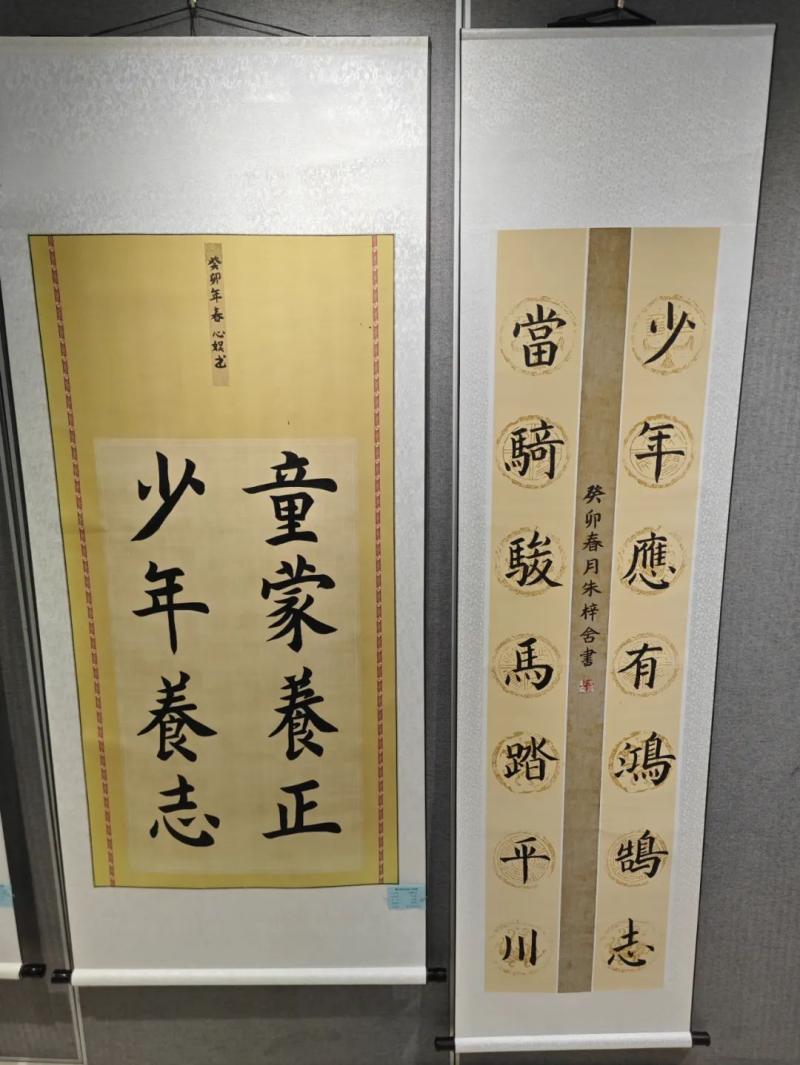 癸卯年春心奴书
童蒙養正
少年養志
少年應有鴻鵠志
癸卯春月朱梓舍書
當騎駿馬踏平川